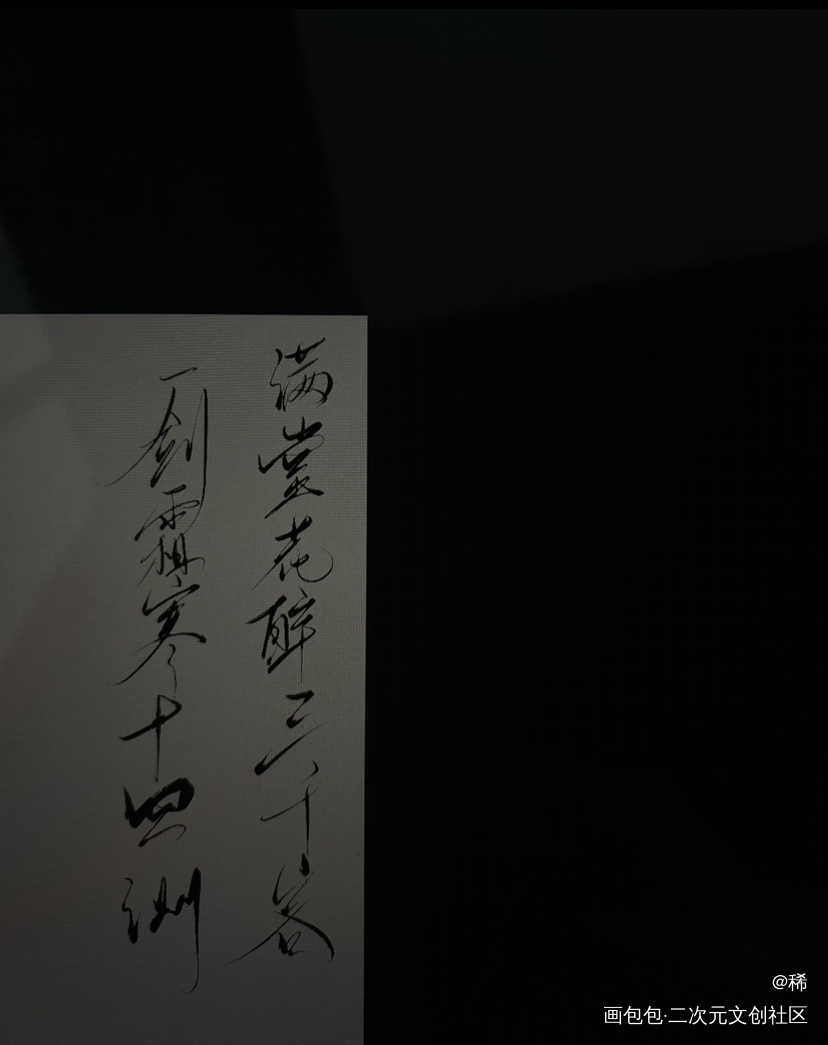 满堂花醉三千客
一剑霜寒十四洲
@稀
画包包·二次元文创社区